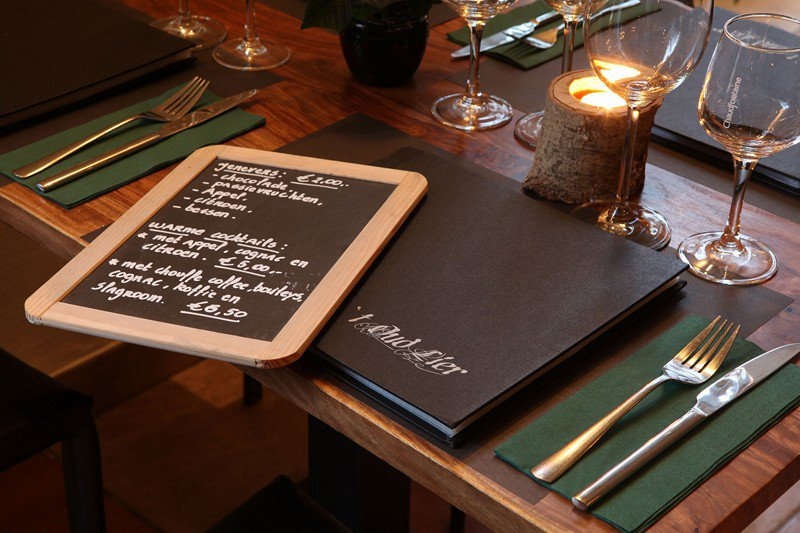 Jenevers: €2,00.
- chocolade
- passievruchten,
- Appel
- citroen.
- bessen.
Warme cocktails:
* met Appel, cognac en
citroen. €5,00,-
* met chouffe coffee, baileys,
cognac, koffie en
slagroom. €6,50
't Oud Lier
Chaudfontaine